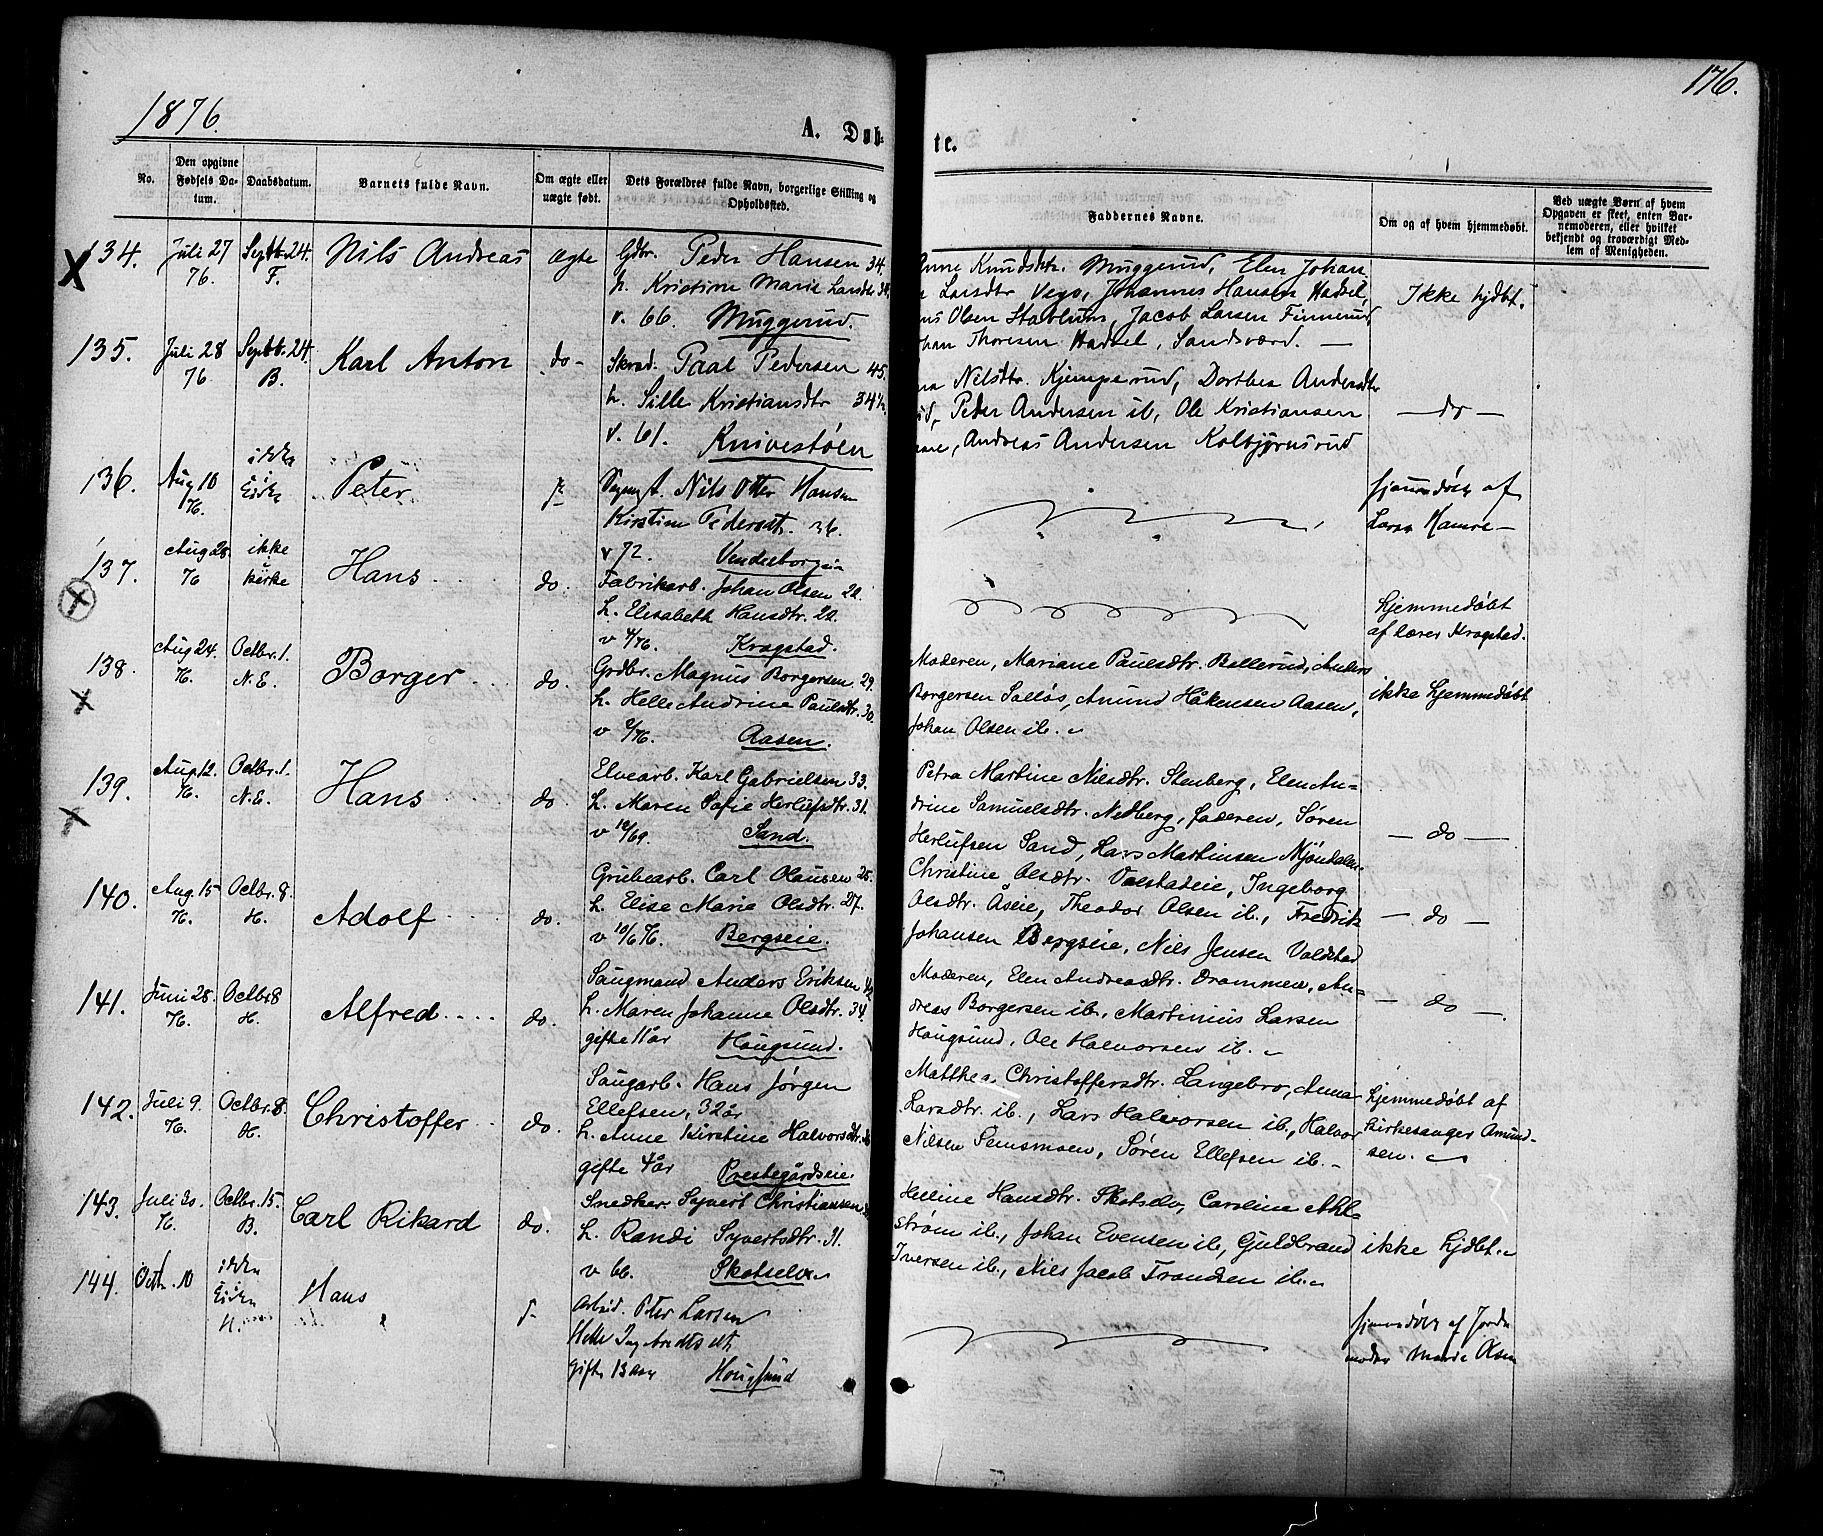 1876.
176.
A. Døb-
te.
No.
Den opgivne Fødsels Datum.
Daabsdatum.
Barnets fulde Navn.
Om ægte eller uægte født.
Dets Forældres fulde Navn, borgerlige Stilling og Opholdssted.
Faddernes Navne.
Om og af hvem hjemmedøbt.
Ved uægte Børn af hvem Opgaven er skeet, enten Barnemoderen, eller hvilket bekjendt og troværdigt Medlem af Menigheden.
134. Juli 27 76. Septb. 24. F. Nils Andreas ægte
Gdbr. Peder Hansen 34.
h. Kristine Marie Larsdtr
v. 66. Muggerud.
Anne Knudsdtr. Muggerud, Elen Johan
Larsdtr Vego, Johannes Hansen Hadsel,
Olsen Stavlum, Jacob Larsen Finnerud,
Thoresen Hadsel, Sandsværd. —
Ikke hjdbt.
135. Juli 28 76. Septb. 24. B. Karl Anton do-
Skræd. Paal Pedersen 45.
h. Sille Kristiansdtr 34½
v. 61. Knivestøen
Nilsdtr. Kjemperud, Dorthea Andersdtr
Peder Andersen ib, Ole Kristiansen
Andreas Andersen Kolbjørnsrud
— do —
136. Aug 10 76. ikke Kirke Peter
Nils Otter Hansen
Kirstine Pedersdt. 36.
v 72.
hjemmedøbt af
Lars Hamre —
137. Aug 28. 76 ikke kirke Hans do.
Fabrikarb. Johan Olsen 22.
h. Elisabeth Hansdtr. 22.
v 4/76. Kragstad.
hjemmedøbt
af lærer Kragstad.
138. Aug 24. 76. Octbr. 1. N.E. Borger do.
Grdbr. Magnus Borgersen 29.
h. Helle Andrine Paulsdtr. 30.
v 2/76. Aasen.
Moderen, Mariane Paulsdtr. Bollerud, Anders
Borgersen Solløs, Amund Håkensen Aasen,
Johan Olsen ib.
ikke hjemmedøbt
139. Aug. 12. 76. Octbr. 1. N.E. Hans do.
Elvearb. Karl Gabrielsen 33.
h. Maren Sofie Herlufsdtr. 31.
v 12/69. Sand.
Petra Martine Nilsdtr. Stenberg, Elen An-
drine Samuelsdtr. Nedberg, faderen, Søren
Herlufsen Sand, Lars Martinsen Mjøndalen.
— do —
140. Aug. 15 76. Octbr. 8. H. Adolf do.
Grubearb. Carl Olausen 25.
h. Elise Marie Olsdtr. 27.
v 10/6 76. Bergseie.
Christine Olsdtr. Valstadeie, Ingeborg
Olsdtr. Åseie, Theodor Olsen ib., Fredrik
Johansen Bergseie, Nils Jensen Valdstad
— do —
141. Juni 28. 76. Octbr 8 H. Alfred do.
Saugmand Anders Eriksen 42
h. Maren Johanne Olsdtr. 34.
gifte 11 år Hougsund.
Moderen, Elen Andreasdtr. Drammen, An-
dreas Borgersen ib., Martinius Larsen
Hougsund, Ole Halvorsen ib.
— do —
142. Juli 9. 76. Octbr. 8. H. Christoffer do.
Saugarb. Hans Jørgen
Ellefsen, 32 år
h. Anne Kirstine Halvorsdtr.
gifte 4 år Prestegårdseie
Matthea Christoffersdtr. Langebro, Anna
Larsdtr. ib., Lars Halvorsen ib., Halvor
Nilsen Semsmoen, Søren Ellefsen ib.
hjemmedøbt af
kirkesanger Amund-
sen.
143. Juli 30. 76. Octbr. 15. B. Carl Rikard do.
Snedker Syvert Christiansen
h. Randi Syvertsdtr. 31.
v 66. Skotselv
Helline Hansdtr. Skotselv, Caroline Ahl-
strøm ib., Johan Evensen ib., Guldbrand
Iversen ib., Nils Jacob Frandsen ib.
ikke hjdbt.
144. Octbr. 10 ikke Kirke H. Hans
Arbeid. Peter Larsen
Helle Ingebredtsdtr
gifte 13 aar Hougsund
hjemmedøbt af Jorde
moder Marie Olsen